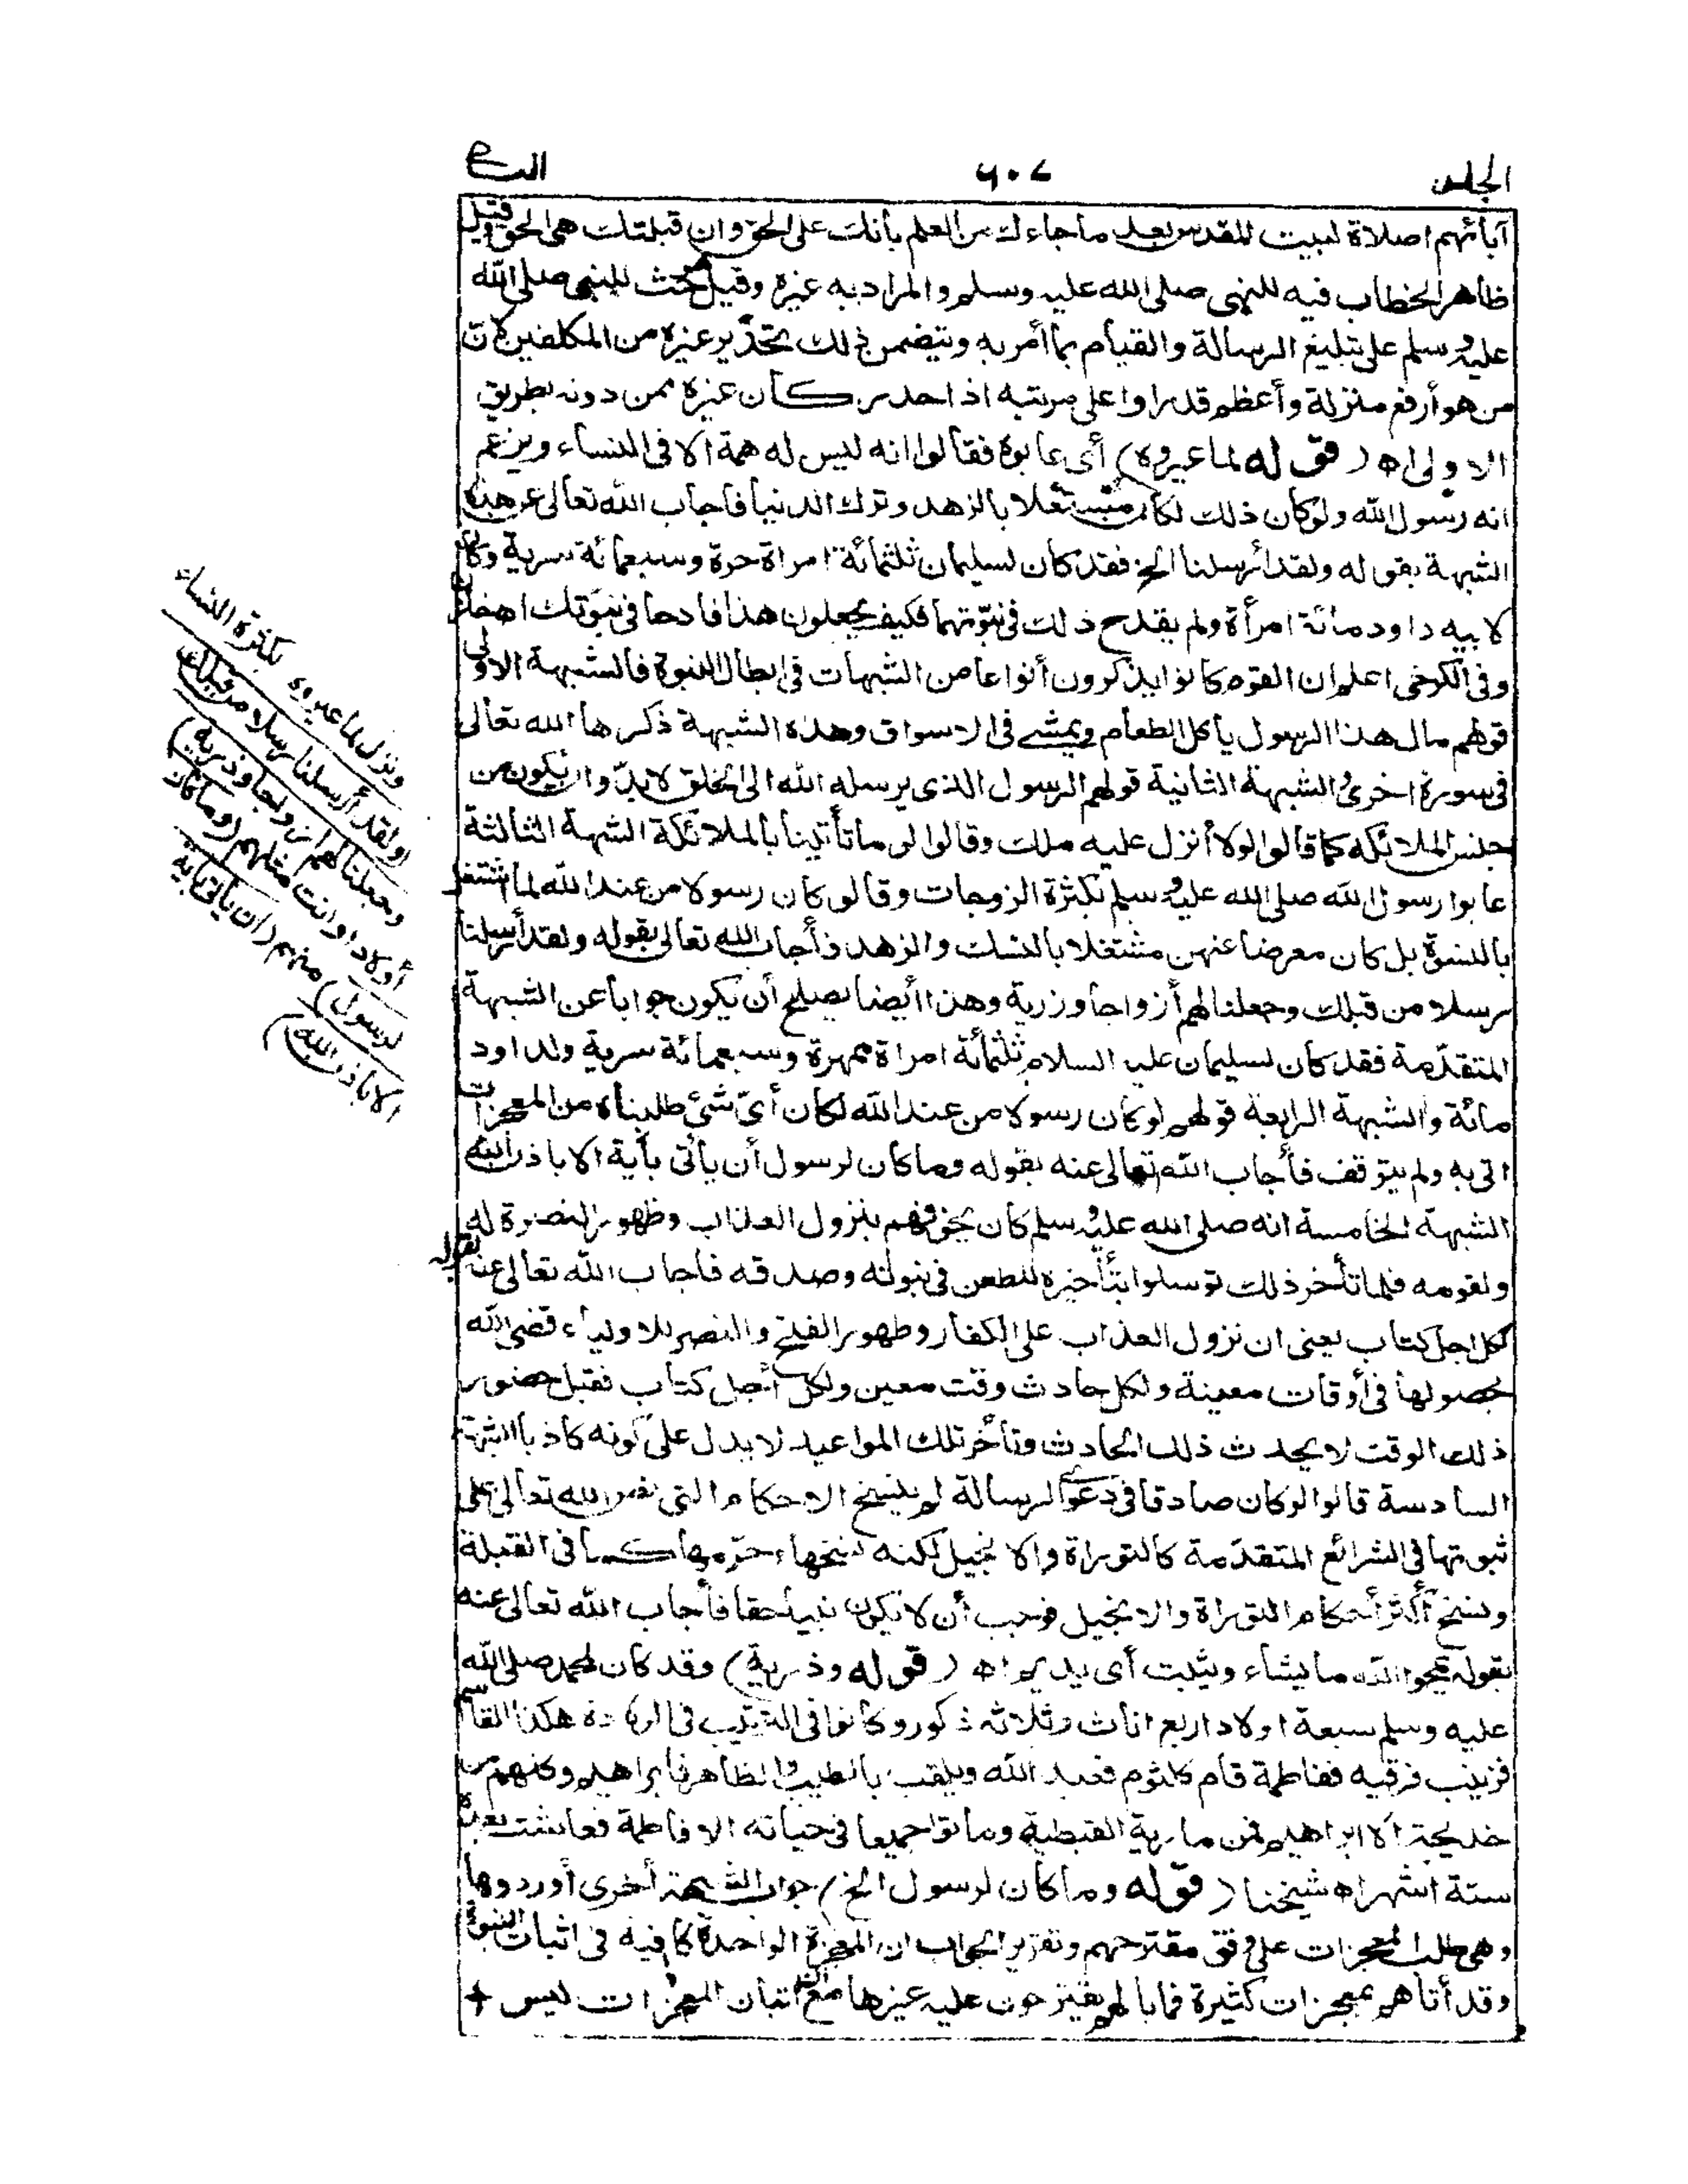 الجلس ٦٠٧ الرابع
آبائهم اصلاة لبيت المقدس بعد ما جاءك من العلم بأنك على الحق وان قبلتك هى الحق وقيل
ظاهر الخطاب فيه للنبى صلى الله عليه وسلم والمراد به غيره وقيل حث للنبى صلى الله
عليه وسلم على تبليغ الرسالة والقيام بما أمر به ويتضمن ذلك تحذير غيره من المكلفين لان
من هو أرفع منزلة وأعظم قدرا واعلى مرتبه اذا حذر كان غيره ممن دونه بطريق
الاولى اه (قوله لما عيروه) أى عابوه فقالوا انه ليس له همة الا فى النساء ويزعم
انه رسول الله ولو كان ذلك لكان مشتغلا بالزهد وترك الدنيا فاجاب الله تعالى عن هذه
الشبهة بقوله ولقد أرسلنا الخ فقد كان لسليمان ثلثمائة امراة حرة وسبعمائة سرية وكان
لابيه داود مائة امرأة ولم يقدح ذلك فى نبوتهما فكيف يجعلون هذا قادحا فى نبوتك اه خازن
وفى الكرخى اعلم ان القوم كانوا يذكرون أنواعا من الشبهات فى ابطال النبوة فالشبهة الاولى
قولهم مال هذا الرسول يأكل الطعام ويمشى فى الاسواق وهذه الشبهة ذكرها الله تعالى
فى سورة اخرى الشبهة الثانية قولهم الرسول الذى يرسله الله الى الخلق لابد وان يكون من
جنس الملائكه كما قالوا لولا أنزل عليه ملك وقالوا لو ما تأتينا بالملائكة الشبهة الثالثة
عابوا رسول الله صلى الله عليه وسلم بكثرة الزوجات وقالو كان رسولا من عند الله لما اشتغل
بالنسوة بل كان معرضا عنهن مشتغلا بالنسك والزهد فأجاب الله تعالى بقوله ولقد أرسلنا
رسلا من قبلك وجعلنا لهم أزواجا وزرية وهذا أيضا يصلح أن يكون جوابا عن الشبهة
المتقدمة فقد كان لسليمان عليه السلام ثلثمائة امراة مهرة وسبعمائة سرية ولداود
مائة والشبهة الرابعة قولهم لو كان رسولا من عند الله لكان أى شئ طلبناه من المعجزات
اتى به ولم يتوقف فأجاب الله تعالى عنه بقوله وما كان لرسول أن يأتى بأية الا باذن الله
الشبهة الخامسة انه صلى الله عليه وسلم كان يخوفهم بنزول العذاب وظهور النصرة له
ولقومه فلما تأخر ذلك توسلوا بتأخيره للطعن فى نبوته وصدقه فاجاب الله تعالى عنه بقوله
لكل اجل كتاب يعنى ان نزول العذاب على الكفار وظهور الفتح والنصر للاولياء قضى الله
بحصولها فى أوقات معينة ولكل حادث وقت معين ولكل أجل كتاب فقبل حضور
ذلك الوقت لا يحدث ذلك الحادث وتأخر تلك المواعيد لا يدل على كونه كاذبا الشبهة
السادسة قالوا لو كان صادقا فى دعوى الرسالة لم ينسخ الاحكام التى نص الله تعالى على
ثبوتها فى الشرائع المتقدمة كالتوراة والانجيل لكنه نسخها وحرمها كما فى القبلة
ونسخ أكثر أحكام التوراة والانجيل فوجب أن لا يكون نبيا حقا فأجاب الله تعالى عنه
بقوله يمحوا الله ما يشاء ويثبت أى يديم اه (قوله وذرية) وقد كان لمحمد صلى الله
عليه وسلم سبعة اولاد اربع اناث وثلاثه ذكور وكانوا فى الترتيب فى الولادة هكذا القاسم
فزينب فرقيه ففاطمة فام كلثوم فعبد الله ويلقب بالطيب والطاهر فابراهيم وكلهم من
خديجة الا ابراهيم فمن مارية القبطية وماتوا جميعا فى حياته الا فاطمة فعاشت بعده
ستة اشهر اه شيخنا (قوله وما كان لرسول الخ) جواب الشبهة أخرى أوردوها
وهى طلب المعجزات على وفق مقترحهم وتقرير الجواب ان المعجزة الواحدة كافية فى اثبات النبوة
وقد أتاهم بمعجزات كثيرة فما بالهم يقترحون عليه غيرها مع أن اتيان المعجزات ليس
ونزل لما عيروه بكثرة النساء
(ولقد أرسلنا رسلا من قبلك
وجعلنا لهم أزواجا وذرية)
أولادا وانت مثلهم (وما كان
لرسول) منهم (أن يأتى بآية
الا باذن الله)